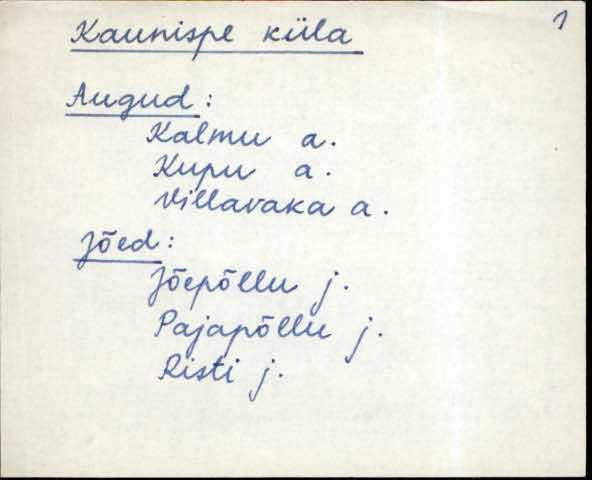 1
Kaunispe küla
Augud:
Kalmu a.
Kupu a.
Villavaka a.
Jõed:
Jõepõllu j.
Pajapõllu j.
Risti j.